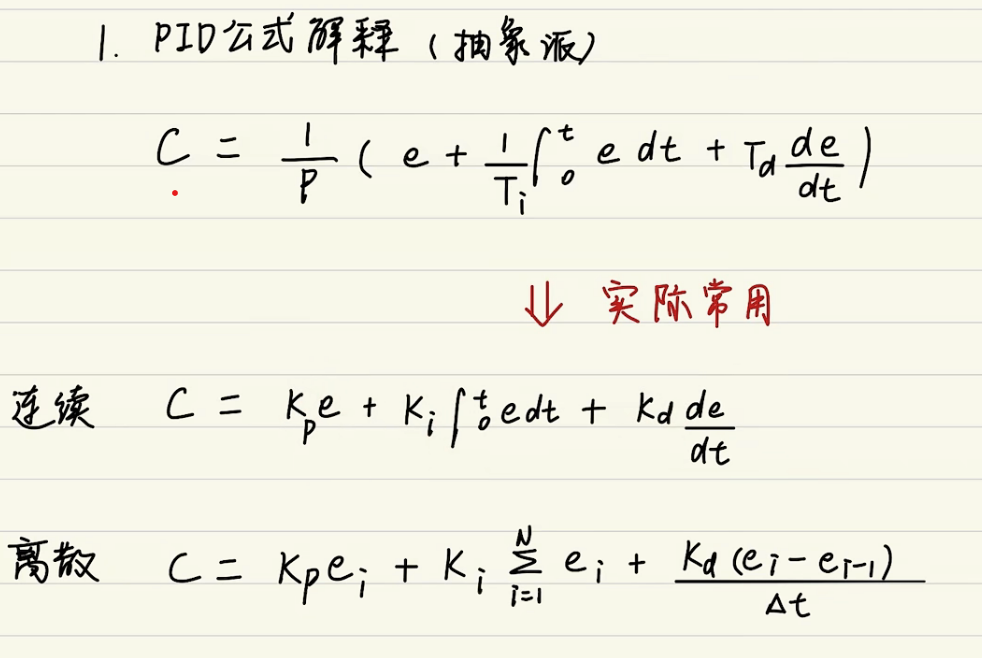 1. PID公式解释（抽象派）
C = 1/P ( e + 1/Ti ∫₀ᵗ e dt + Td de/dt )
⇓ 实际常用
连续 C = Kp e + Ki ∫₀ᵗ e dt + Kd de/dt
离散 C = Kp ei + Ki Σᵢ₌₁ᴺ ei + Kd (ei − ei−1)/Δt